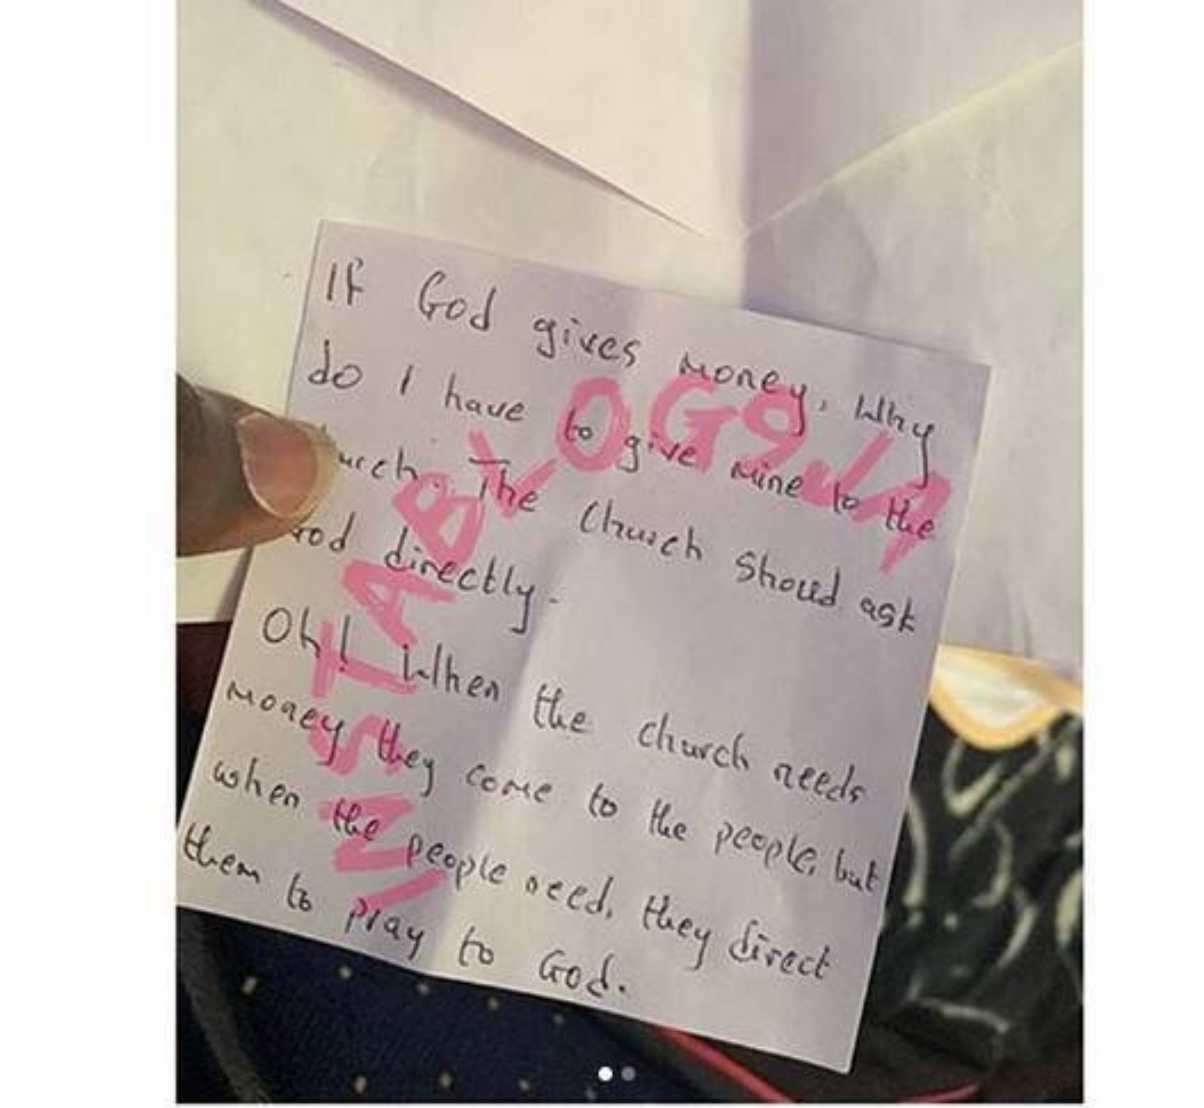 If God gives money, Why
do I have to give mine to the
urch. The Church Shoud ask
od directly.
Oh! When the church needs
money they come to the people, but
when the people need, they direct
them to pray to God.
INSTABLOG9JA